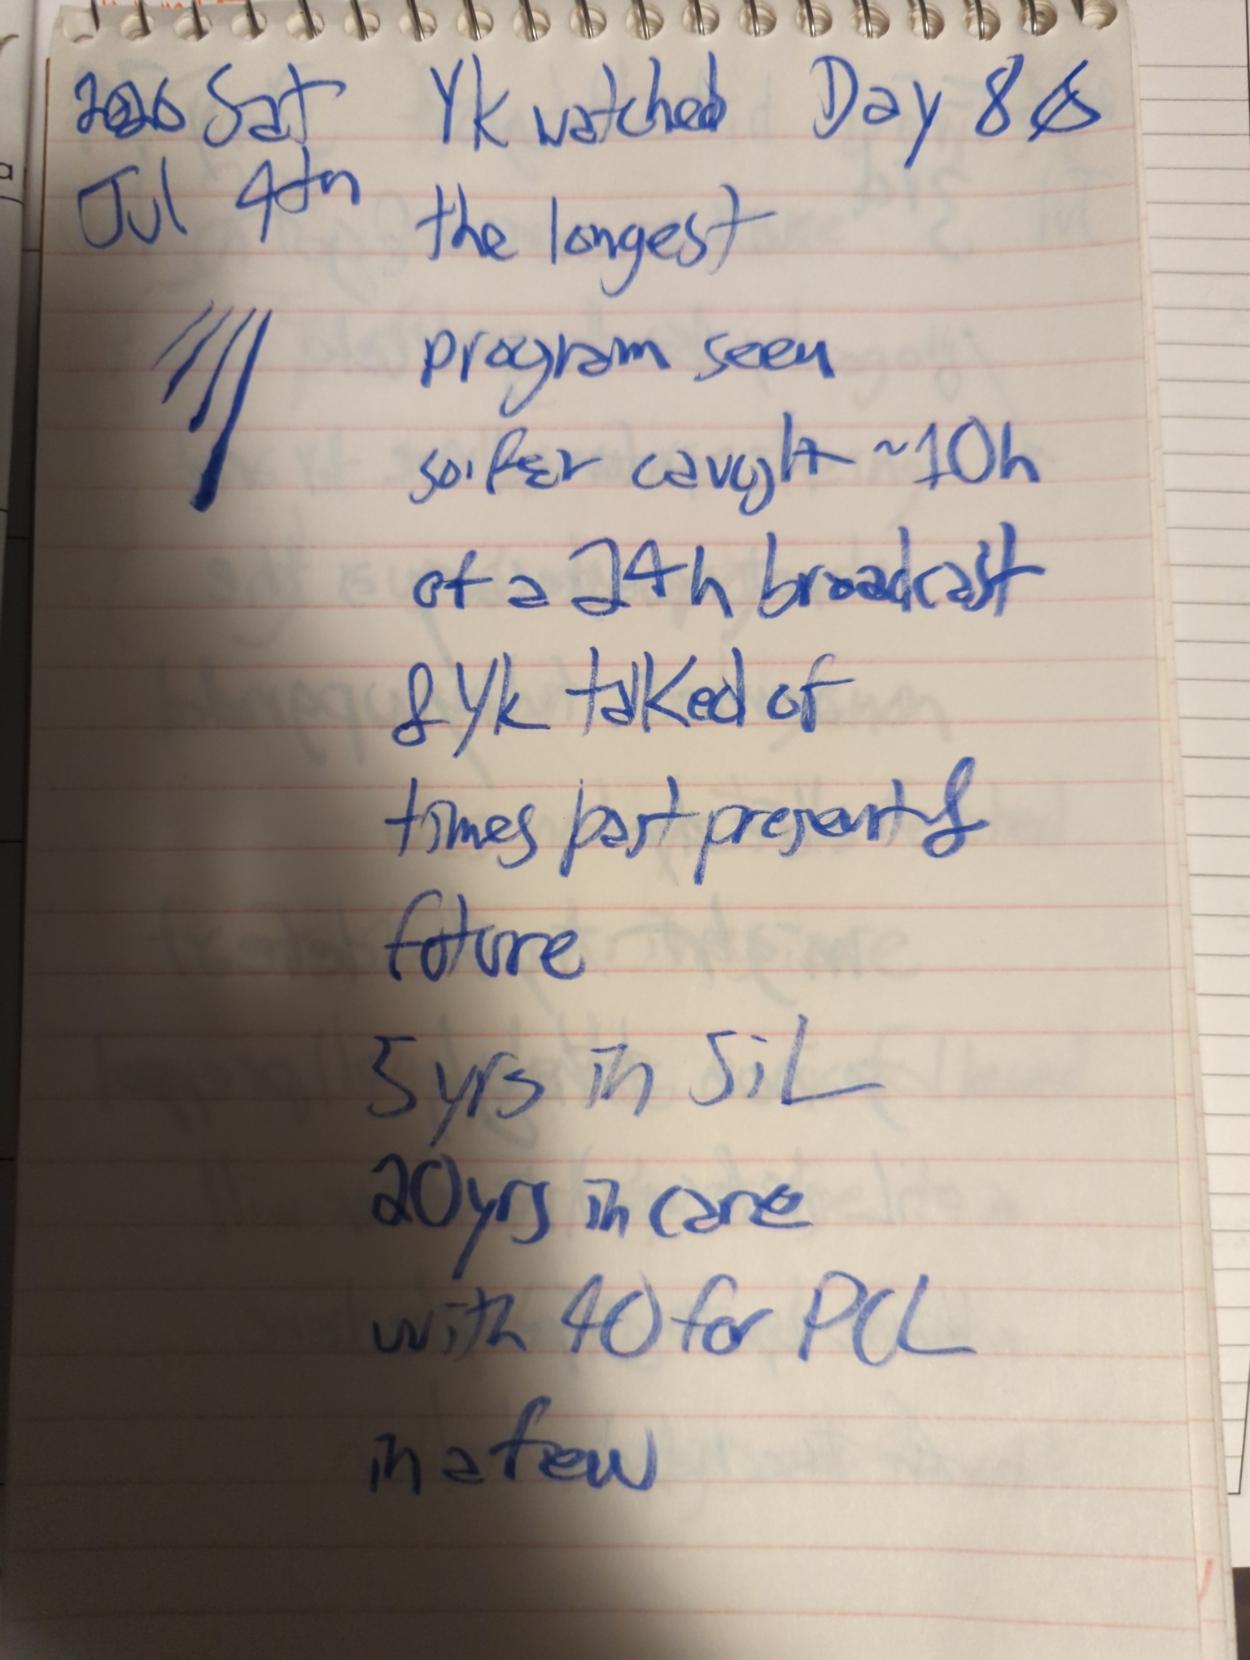 2026 Sat Yk watched Day 80
Jul 4th the longest
program seen
so.fer caught ~10h
of a 24h broadcast
& Yk talked of
times past present &
future
5 yrs in SiL
20 yrs in care
with 40 for PCL
in a few